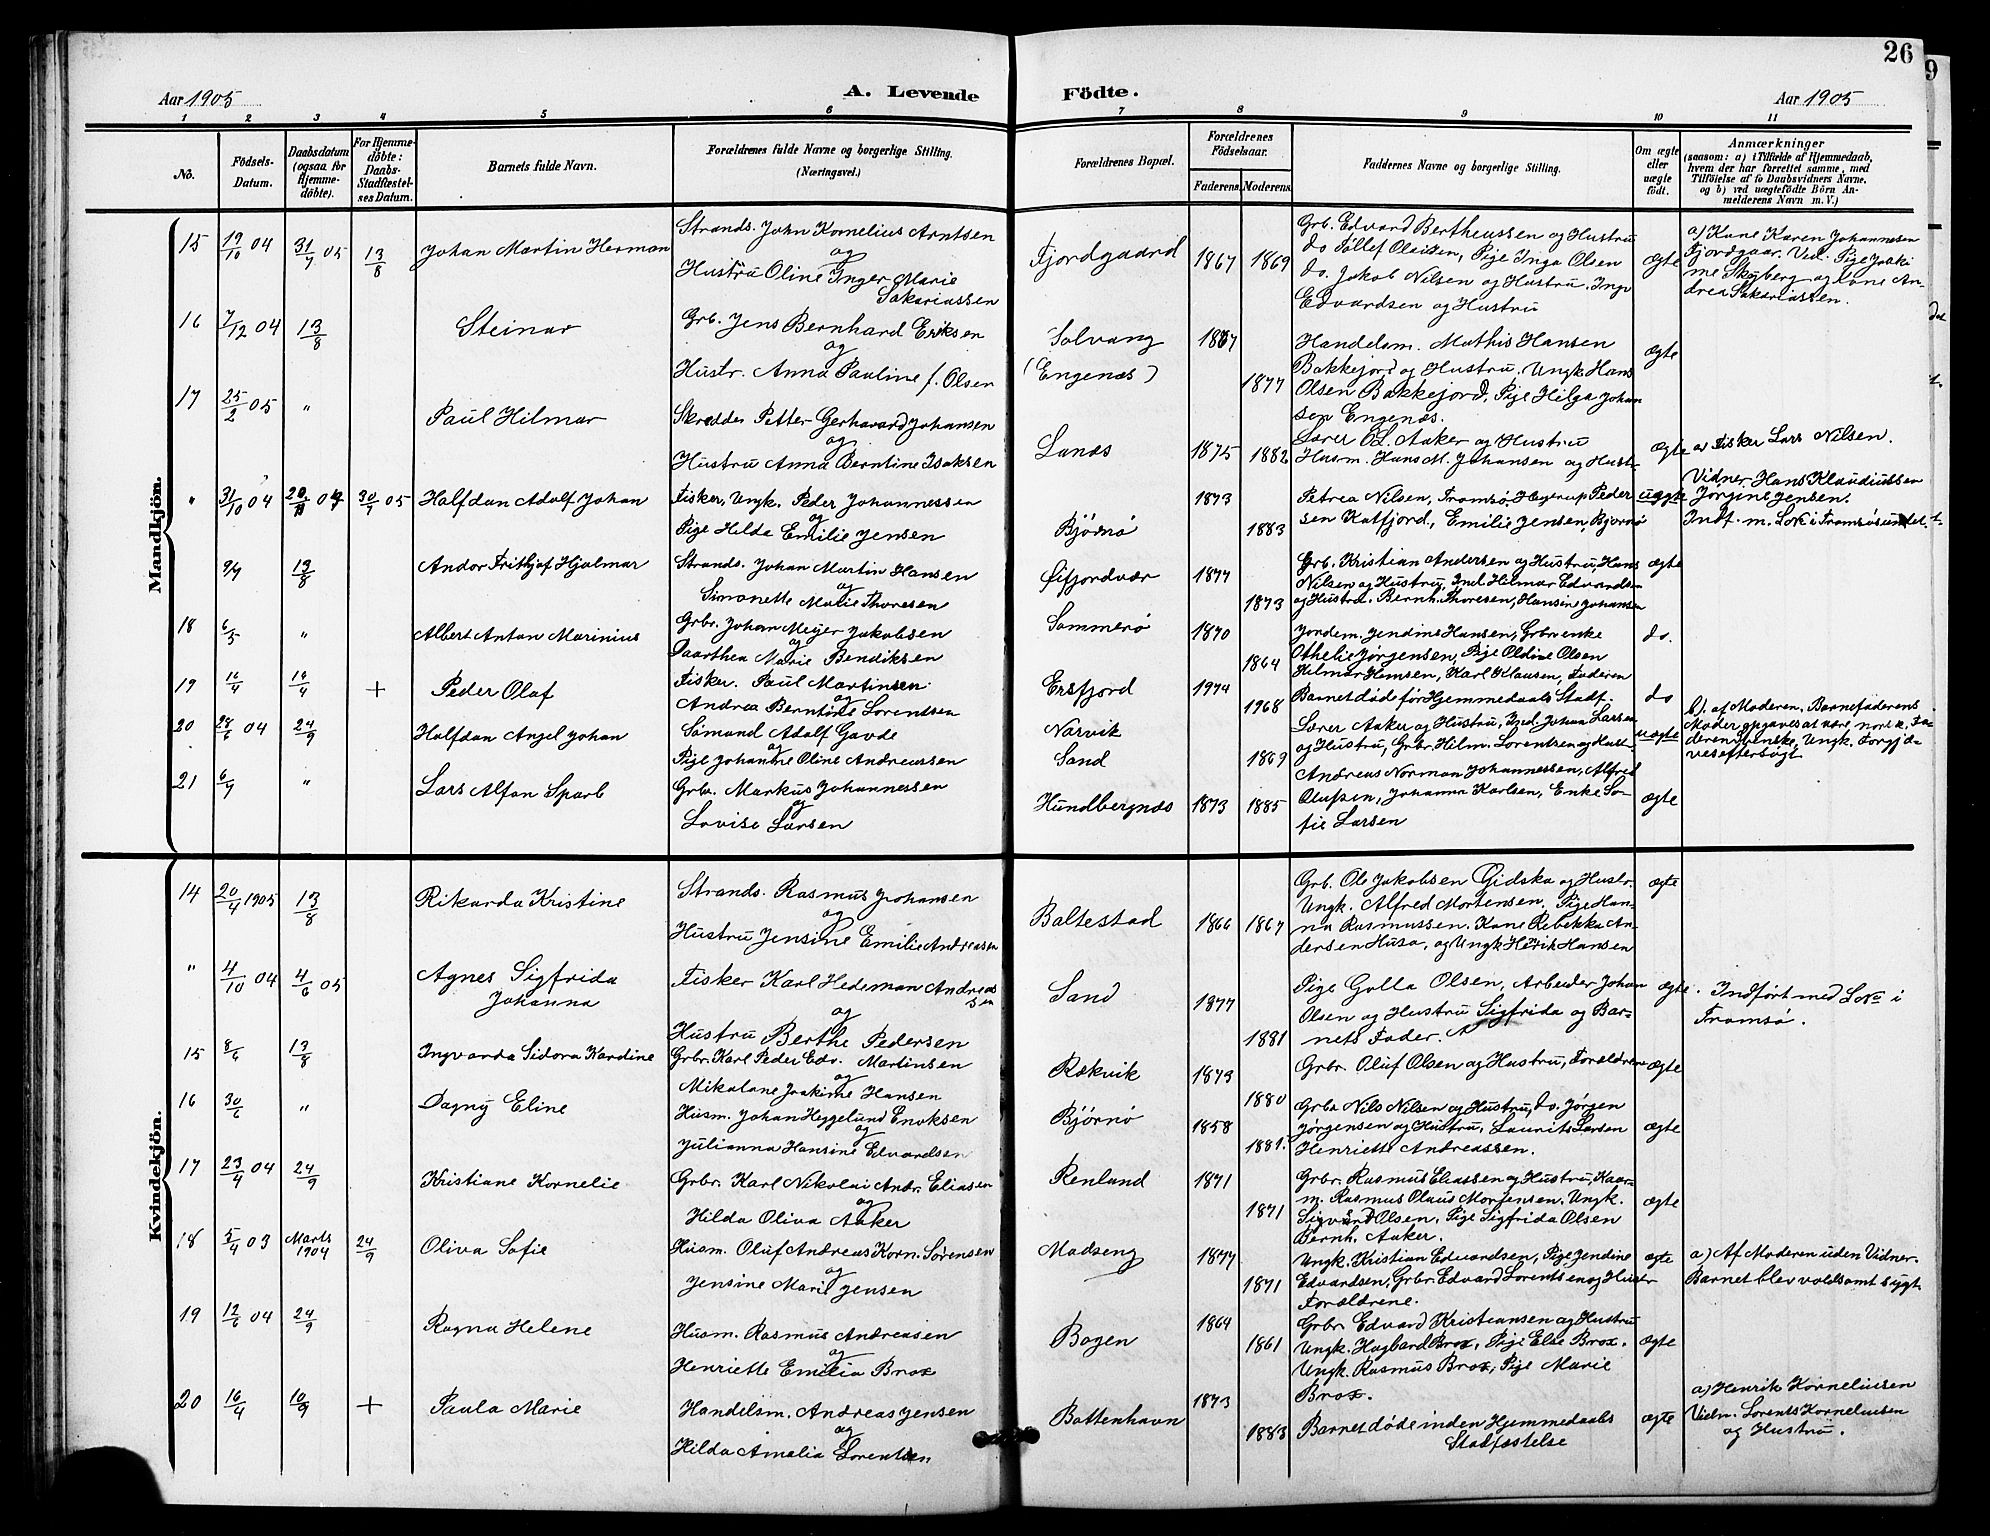 26
Aar 1905
A. Levende Födte.
Aar 1905
1 2 3 4 5 6 7 8 9 10 11
No.
Födsels-
Datum.
Daabsdatum
(ogsaa for
Hjemme-
döbte).
For Hjemme-
döbte:
Daabs-
Stadfæstel-
ses Datum.
Barnets fulde Navn.
Forældrenes fulde Navne og borgerlige Stilling.
(Næringsvei.)
Forældrenes Bopæl.
Forældrenes
Födselsaar.
Faderens.
Moderens.
Faddernes Navne og borgerlige Stilling.
Om ægte
eller
uægte
födt.
Anmærkninger
(saasom: a) i Tilfælde af Hjemmedaab,
hvem der har forrettet samme, med
Tilföielse af to Daabsvidners Navne,
og b) ved uægtefödte Börn An-
melderens Navn m. V.)
Mandkjön.
15 19/10 04 31/7 05 13/8 Johan Martin Herman
Strands. John Kornelius Arntsen
og
Hustru Oline Inger Marie
Sakariassen
Fjordgaard 1867 1869
Grb. Edvard Bertheussen og Hustru
do Tollef Olsen, Pige Inga Olsen
do. Jakob Nilsen og Hustru. Ing
Edvardsen og Hustru
ægte
a) Kone Karen Johannesen
Fjordgaar. Vid. Pige Joaki
me Skyberg og Lone An-
drea Sakariassen.
16 7/12 04 13/8 Steinar
Grb. Jens Bernhard Eriksen
og
Hustr. Anna Pauline f. Olsen
Solvang
(Engenæs)
1867 1877
Handelsm. Mathis Hansen
Bakkejord og Hustru. Ungk Hans
Olsen Bakkejord, Pige Helga Johan
sen Engenæs.
ægte
17 25/2 05 " Paul Hilmar
Skrædder Petter Gerhard Johansen
og
Hustru Anna Berntine Isaksen
Lanæs 1875 1882
Lærer O.L. Aaker og Hustru
Husm. Hans M. Johansen og Hustr.
ægte
a) Fisker Lars Nilsen.
" 31/10 04 30/7 05 Halfdan Adolf Johan
Fisker, Ungk. Peder Johannessen
og
Pige Hilda Emilie Jensen
Bjørnø 1873 1883
Petrea Nilsen, Tromsø, Hagerup Peder
sen Katfjord, Emilie Jensen, Bjørnø
uægte
Vidner, Hans Klaudiussen
Jørgine Jensen.
Indf. m. L№ i Tromsøsundet.
9/4 13/8 Andor Frithjof Hjalmar
Strands. Johan Martin Hansen
og
Simonette Marie Thoresen
Øifjordvær 1877 1873
Grb. Kristian Andersen og Hustru, Hans
Nilsen og Hustru, Ind. Hilmar Edvardsen
og Hustru. Bernh. Thoresen, Hansine Johansen
ægte
18 6/5 " Albert Anton Marinius
Grbr. Johan Meyer Jakobsen
og
Daarthea Marie Bendiksen
Sommerø 1870 1864
Jordem. Jendine Hansen, Grbr enke
Othelie Jørgensen, Pige Oldine Olsen
Hilmar Hemsen, Karl Klausen, Faderen
do.
19 16/4 16/4 + Peder Olaf
Fisker. Paul Martinsen
og
Andrea Berntine Lorentsen
Ersfjord 1974 1968
Barnet døde før Hjemmedaabs Stadf.
do
20 28/6 04 24/9 Halfdan Angel Johan
Sømand Adolf Gavde
og
Pige Johanne Oline Andreassen
Narvik
Sand
1869
Lærer Aaker og Hustru, Ind. Johan Larsen
og Hustru, Grbr. Hilm. Lorentsen og Hustr.
uægte
b). af Moderen. Barnefaderens
Moder opgaves at være norsk, Fa-
deren svenske, Ungk. Forgjæ-
ves eftersøgt.
21 6/7 " Lars Alfon Sparb
Grbr. Markus Johannessen
og
Lovise Larsen
Hundbergnæs 1873 1885
Andreas Norman Johannessen, Alfred
Olufsen, Johanna Karlsen, Enke So-
fie Larsen
ægte
Kvindekjön.
14 20/4 1905 13/8 Rikarda Kristine
Strands. Rasmus Johansen
og
Hustru Jensine Emilie Andreasen
Baltestad 1866 1867
Grb. Ole Jakobsen Gidska og Hustr.
Ungk. Alfred Mortensen. Pige Han-
na Rasmussen. Kone Rebekka An-
dersen Husø, og Ungk Henrik Hansen
ægte
" 4/10 04 4/6 05 Agnes Sigfrida
Johanna
Fisker Karl Hedeman Andreas
sen
og
Hustru Berthe Pedersen
Sand 1877 1881
Pige Golla Olsen, Arbeider Johan
Olsen og Hustru Sigfrida og Bar-
nets Fader.
ægte.
Indført med L№ i
Tromsø.
15 8/6 13/8 Ingvarda Sidora Kardine
Grbr. Karl Peder Edv. Martinsen
og
Mikalane Joakime Hansen
Rækvik 1873 1880
Grbr. Oluf Olsen og Hustru, Forældrene
ægte
16 30/6 " Dagny Eline
Husm. Johan Heggelund Enoksen
og
Julianna Hansine Edvardsen
Bjørnø 1858 1881.
Grbr Nils Nilsen og Hustru, do. Jørgen
Jørgensen og Hustru, Laurits Larsen
Henriette Andreassen.
ægte
17 23/4 04 24/9 Kristiane Kornelie
Grbr. Karl Nikolai Andr. Eliasen
og
Hilda Oliva Aaker
Renland 1871 1871
Grbr. Rasmus Eliassen og Hustru, Kaar-
m. Rasmus Olaus Mortensen. Ungk.
Sigvard Olsen. Pige Sigfrida Olsen
Bernh. Aaker.
ægte
18 5/4 03 Marts
1904 24/9 Oliva Sofie
Husm. Oluf Andreas Korn. Sørensen
og
Jensine Marie Jensen
Madseng 1877 1871
Ungk. Kristian Edvardsen, Pige Jendine
Edvardsen, Grbr. Edvard Lorentsen og Hustr
Forældrene.
ægte
a) Af Moderen uden Vidner.
Barnet blev voldsomt sygt.
19 12/6 04 24/9 Ragna Helene
Husm. Rasmus Andreasen
og
Henriette Emelia Brox
Bogen 1864 1861
Grbr. Edvard Kristiansen og Hustru
Ungk. Hagbard Brox. Pige Else Brox.
Ungk. Rasmus Brox, Pige Marie
Brox.
ægte
20 16/4 10/9 + Paula Marie
Handelsm. Andreas Jensen
og
Hilda Amalia Lorentsen
Bottenhavn 1873 1883
Barnet døde inden Hjemmedaabs
Stadfæstelse
ægte
a) Henrik Korneliusen
Vidn. Lorents Korneliusen
og Hustru.